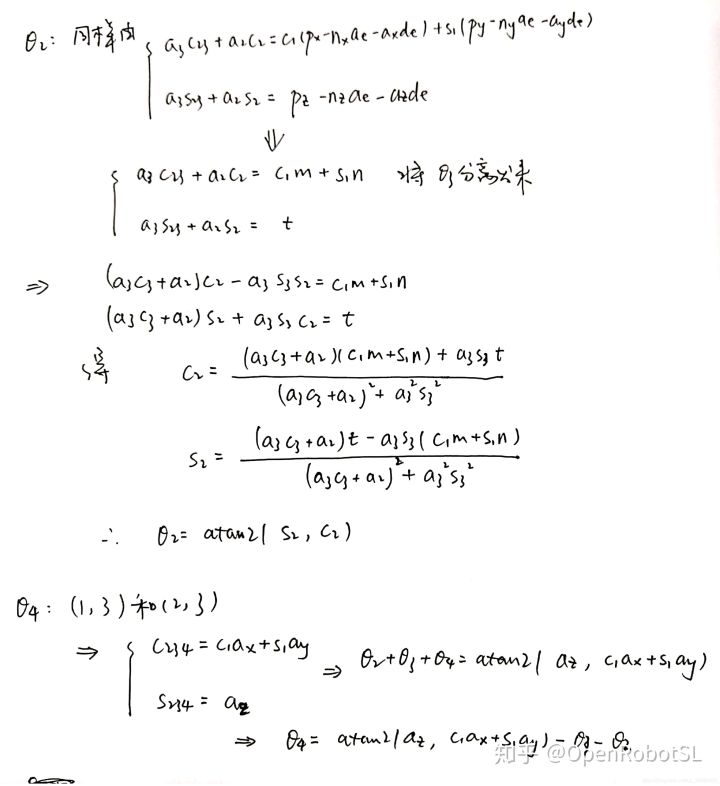 θ₂: 同样由 { a₃c₂₃ + a₂c₂ = c₁(pₓ - nₓae - aₓde) + s₁(py - nyae - ayde)
a₃s₂₃ + a₂s₂ = pz - nzae - azde
⇓
{ a₃c₂₃ + a₂c₂ = c₁m + s₁n 将θ₃分离出来
a₃s₂₃ + a₂s₂ = t
⇒ (a₃c₃ + a₂)c₂ - a₃s₃s₂ = c₁m + s₁n
(a₃c₃ + a₂)s₂ + a₃s₃c₂ = t
得 c₂ = ((a₃c₃ + a₂)(c₁m + s₁n) + a₃s₃t) / ((a₃c₃ + a₂)² + a₃²s₃²)
s₂ = ((a₃c₃ + a₂)t - a₃s₃(c₁m + s₁n)) / ((a₃c₃ + a₂)² + a₃²s₃²)
∴ θ₂ = atan2(s₂, c₂)
θ₄: (1,3)和(2,3)
⇒ { c₂₃₄ = c₁aₓ + s₁ay ⇒ θ₂ + θ₃ + θ₄ = atan2(az, c₁aₓ + s₁ay)
s₂₃₄ = az
⇒ θ₄ = atan2(az, c₁aₓ + s₁ay) - θ₂ - θ₃
知乎 @OpenRobotSL